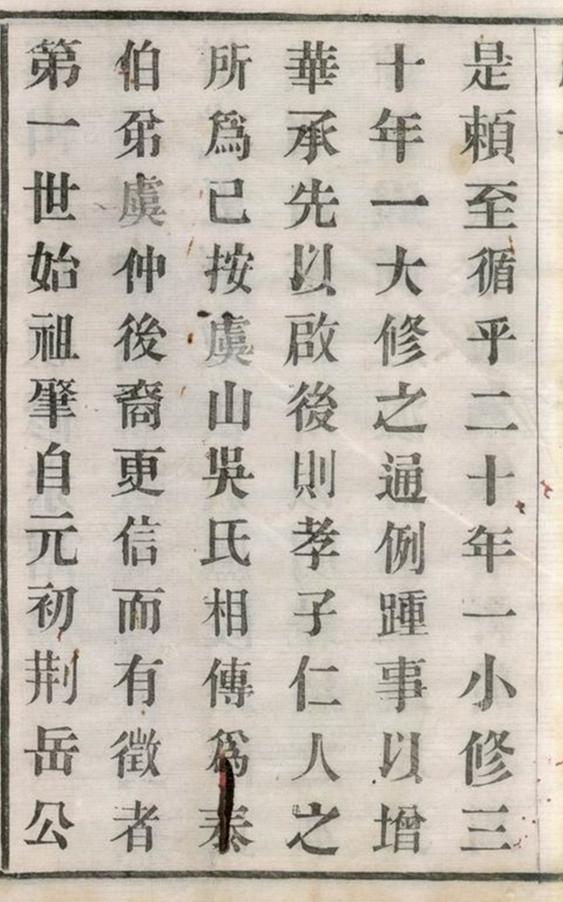 是賴至循乎二十年一小修三
十年一大修之通例踵事以增
華承先以啟後則孝子仁人之
所爲已按虞山吳氏相傳爲泰
伯弟虞仲後裔更信而有徵者
第一世始祖肇自元初荆岳公